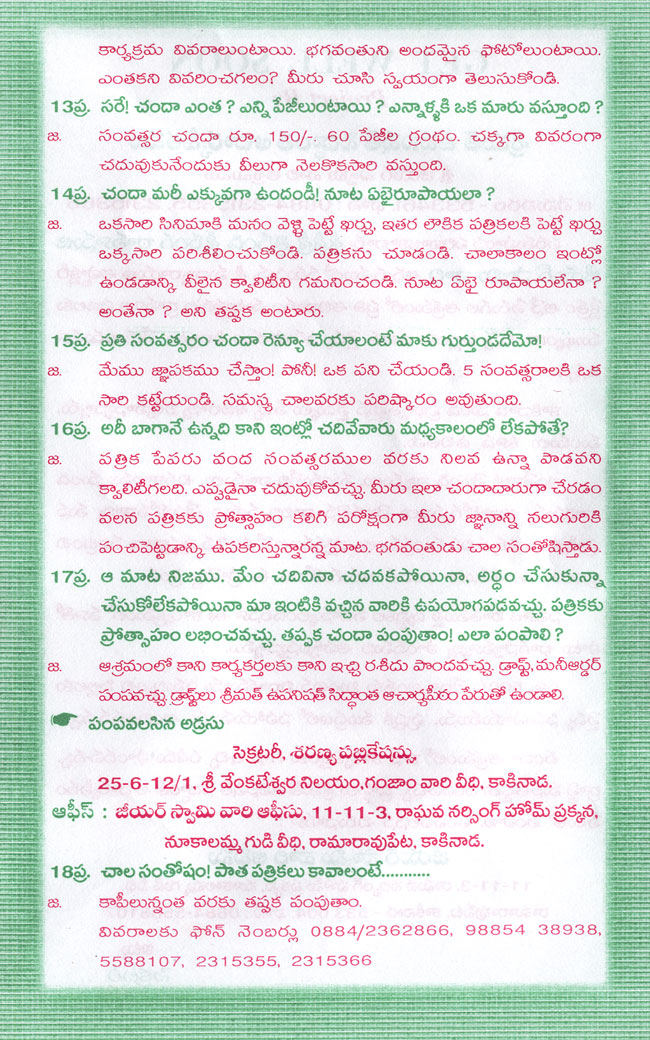 కార్యక్రమ వివరాలుంటాయి. భగవంతుని అందమైన ఫోటోలుంటాయి.
ఎంతకని వివరించగలం? మీరు చూసి స్వయంగా తెలుసుకోండి.
13ప్ర. సరే! చందా ఎంత? ఎన్ని పేజీలుంటాయి? ఎన్నాళ్ళకి ఒక మారు వస్తూంది?
జ. సంవత్సర చందా రూ. 150/-. 60 పేజీల గ్రంథం. చక్కగా వివరంగా
చదువుకునేందుకు వీలుగా నెలకొకసారి వస్తుంది.
14ప్ర. చందా మరీ ఎక్కువగా ఉందండీ! నూట ఏభైరూపాయలా?
జ. ఒకసారి సినిమాకి మనం వెళ్ళి పెట్టే ఖర్చు, ఇతర లౌకిక పత్రికలకి పెట్టే ఖర్చు
ఒక్కసారి పరిశీలించుకోండి. పత్రికను చూడండి. చాలాకాలం ఇంట్లో
ఉండడాన్కి వీలైన క్వాలిటీని గమనించండి. నూట ఏభై రూపాయలేనా?
అంతేనా? అని తప్పక అంటారు.
15ప్ర. ప్రతి సంవత్సరం చందా రెన్యూ చేయాలంటే మాకు గుర్తుండదేమో!
జ. మేము జ్ఞాపకము చేస్తాం! పోనీ! ఒక పని చేయండి. 5 సంవత్సరాలకి ఒక
సారి కట్టేయండి. సమస్య చాలవరకు పరిష్కారం అవుతుంది.
16ప్ర. అదీ బాగానే ఉన్నది కాని ఇంట్లో చదివేవారు మధ్యకాలంలో లేకపోతే?
జ. పత్రిక పేపరు వంద సంవత్సరముల వరకు నిలవ ఉన్నా పాడవని
క్వాలిటీగలది. ఎప్పుడైనా చదువుకోవచ్చు. మీరు ఇలా చందాదారుగా చేరడం
వలన పత్రికకు ప్రోత్సాహం కలిగి పరోక్షంగా మీరు జ్ఞానాన్ని నలుగురికి
పంచిపెట్టడాన్కి ఉపకరిస్తున్నారన్న మాట. భగవంతుడు చాల సంతోషిస్తాడు.
17ప్ర. ఆ మాట నిజము. మేం చదివినా చదవకపోయినా, అర్ధం చేసుకున్నా
చేసుకోలేకపోయినా మా ఇంటికి వచ్చిన వారికి ఉపయోగపడవచ్చు. పత్రికకు
ప్రోత్సాహం లభించవచ్చు. తప్పక చందా పంపుతాం! ఎలా పంపాలి?
జ. ఆశ్రమంలో కాని కార్యకర్తలకు కాని ఇచ్చి రశీదు పొందవచ్చు. డ్రాప్ట్, మనీఆర్డర్
పంపవచ్చు. డ్రాప్ట్‌లు శ్రీమత్ ఉపనిషత్ సిద్ధాంత ఆచార్యపీఠం పేరుతో ఉండాలి.
☛ పంపవలసిన అడ్రసు
సెక్రటరీ, శరణ్య పబ్లికేషన్సు,
25-6-12/1, శ్రీ వేంకటేశ్వర నిలయం, గంజాం వారి వీధి, కాకినాడ.
ఆఫీస్ : జీయర్ స్వామి వారి ఆఫీసు, 11-11-3, రాఘవ నర్సింగ్ హోమ్ ప్రక్కన,
నూకాలమ్మ గుడి వీధి, రామారావుపేట, కాకినాడ.
18ప్ర. చాల సంతోషం! పాత పత్రికలు కావాలంటే...........
జ. కాపీలున్నంత వరకు తప్పక పంపుతాం.
వివరాలకు ఫోన్ నెంబర్లు 0884/2362866, 98854 38938,
5588107, 2315355, 2315366